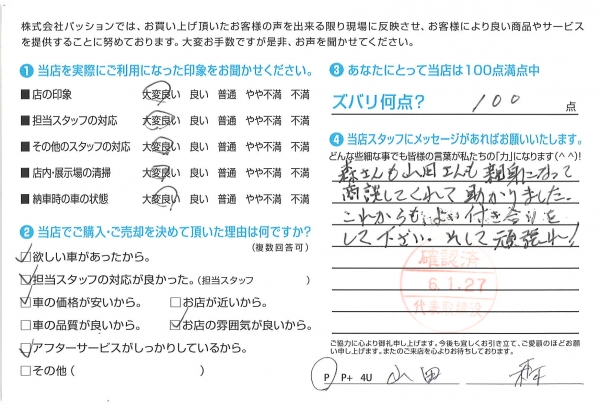 株式会社パッションでは、お買い上げ頂いたお客様の声を出来る限り現場に反映させ、お客様により良い商品やサービス
を提供することに努めております。大変お手数ですが是非、お声を聞かせてください。
❶ 当店を実際にご利用になった印象をお聞かせください。
■ 店の印象 大変良い 良い 普通 やや不満 不満
■ 担当スタッフの対応 大変良い 良い 普通 やや不満 不満
■ その他のスタッフの対応 大変良い 良い 普通 やや不満 不満
■ 店内・展示場の清掃 大変良い 良い 普通 やや不満 不満
■ 納車時の車の状態 大変良い 良い 普通 やや不満 不満
❷ 当店でご購入・ご売却を決めて頂いた理由は何ですか?
(複数回答可)
☑欲しい車があったから。
☑担当スタッフの対応が良かった。(担当スタッフ )
☑車の価格が安いから。 □お店が近いから。
□車の品質が良いから。 ☑お店の雰囲気が良いから。
☑アフターサービスがしっかりしているから。
□その他( )
❸ あなたにとって当店は100点満点中
ズバリ何点? 100 点
❹ 当店スタッフにメッセージがあればお願いいたします。
どんな些細な事でも皆様の言葉が私たちの「力」になります(^^)!
森さんも山田さんも親身になって
商談してくれて助かりました。
これからもよい付き合いを
して下さい。そして頑張れ!
確認済
6.1.27
代表取締役
ご協力に心より御礼申し上げます。今後も宜しくお引き立て、ご愛顧のほどお願
い申し上げます。またのご来店を心よりお待ちしております。
P P+ 4U 山田 森